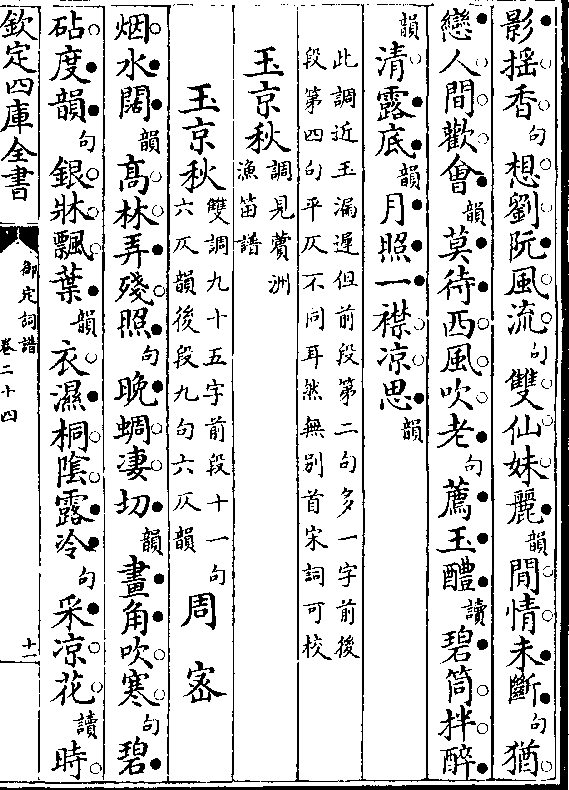 影揺香句想劉阮風流句雙仙妹麗韻閒情未斷句猶
戀人間歡會韻莫待西風吹老句薦玉醴讀碧筒拌醉
韻清露底韻月照一襟凉思韻
此調近玉漏遲但前段第二句多一字前後
段第四句平仄不同耳然無別首宋詞可校
玉京秋調見薲洲
漁笛譜
玉京秋雙調九十五字前段十一句
六仄韻後段九句六仄韻周密
烟水闊韻髙林弄殘照句晚蜩凄切韻畫角吹寒句碧
砧度韻句銀牀飄葉韻衣濕桐隂露冷句采凉花讀時
欽定四庫全書
御定詞譜
卷二十四
十一